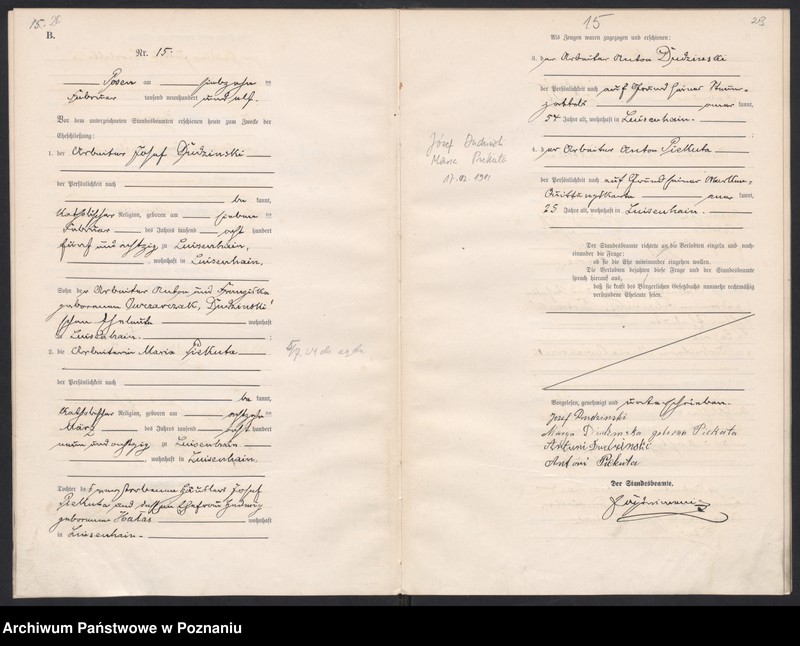 15.
B.
Nr. 15.
Posen am siebzehn ten
Februar tausend neunhundert und elf.
Vor dem unterzeichneten Standesbeamten erschienen heute zum Zwecke der
Eheschließung:
1. der Arbeiter Josef Dudzinski
der Persönlichkeit nach
be kannt,
katholischer Religion, geboren am sieben ten
Februar des Jahres tausend acht hundert
fünf und achtzig zu Luisenhain,
, wohnhaft in Luisenhain,
Sohn des Arbeiter Anton und Franziska
geborenen Dudzinski'
schen Eheleute wohnhaft
in Luisenhain. ;
2. die Arbeiterin Maria Piekuta
der Persönlichkeit nach
be kannt,
katholischer Religion, geboren am achtzehn ten
März des Jahres tausend acht hundert
neun und achtzig zu Luisenhain
, wohnhaft in Luisenhain.
Tochter des verstorbenen Häuslers Josef
Piekuta und dessen Ehefrau Hedwig
geborene Hałas wohnhaft
in Luisenhain.
15
Józef Dudziński
Maria Piekuta
17.02.1911
Als Zeugen waren zugezogen und erschienen:
3. der Arbeiter Anton Dudzinski
der Persönlichkeit nach auf Grund seines Steuer-
zettels aner kannt,
54 Jahre alt, wohnhaft in Luisenhain. ;
4. der Arbeiter Anton Piekuta
der Persönlichkeit nach auf Grund seiner Marken-
Quittungskarte aner kannt,
25 Jahre alt, wohnhaft in Luisenhain.
Der Standesbeamte richtete an die Verlobten einzeln und nach-
einander die Frage:
ob sie die Ehe miteinander eingehen wollen.
Die Verlobten bejahten diese Frage und der Standesbeamte
sprach hierauf aus,
daß sie kraft des Bürgerlichen Gesetzbuchs nunmehr rechtmäßig
verbundene Eheleute seien.
Vorgelesen, genehmigt und unterschrieben.
Jozef Dudzinski
Marya Dudzinska geborena Piekuta
Antoni Dudzinski
Antoni Piekuta
Der Standesbeamte.
Archiwum Państwowe w Poznaniu